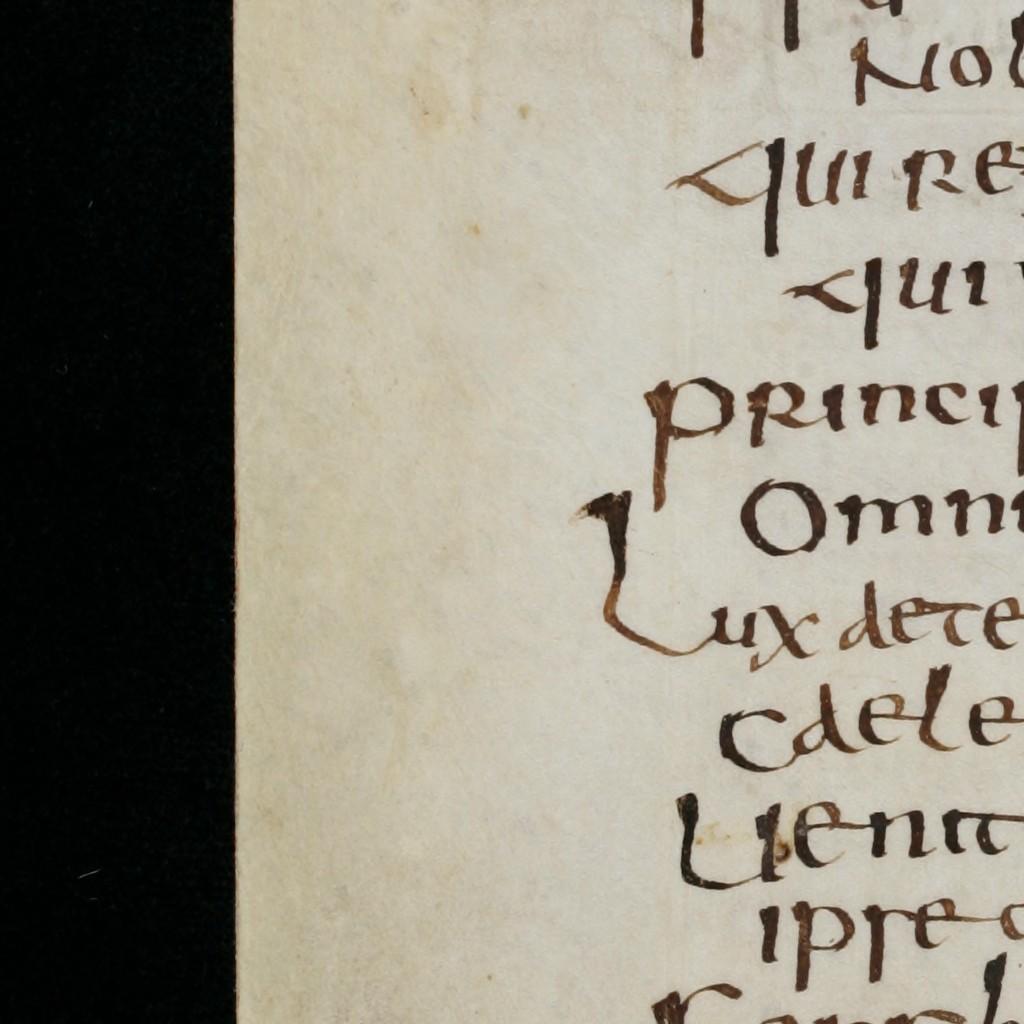 Nob
qui re
qui
princip
Omni
Lux dete
caele
Uenit
ipse